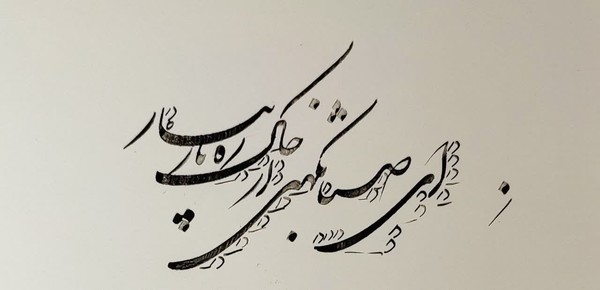 ای صبا نکهتی از خاک ره یار بیار